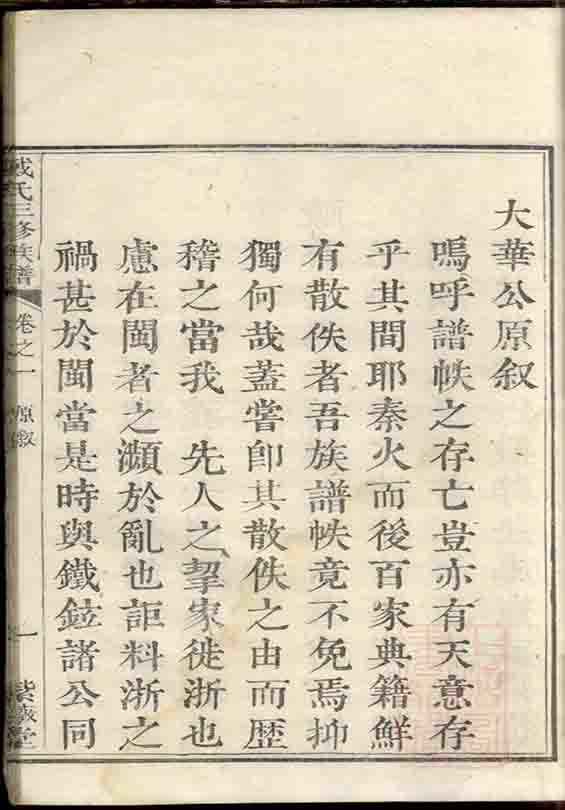 大華公原叙
嗚呼譜帙之存亡豈亦有天意存
乎其間耶秦火而後百家典籍鮮
有散佚者吾族譜帙竟不免焉抑
獨何哉蓋嘗卽其散佚之由而歷
稽之當我 先人之挈家徙浙也
慮在閩者之瀕於亂也詎料浙之
禍甚於閩當是時與鐵鉝諸公同
氏三修族譜 卷之一 原叙 一 堂